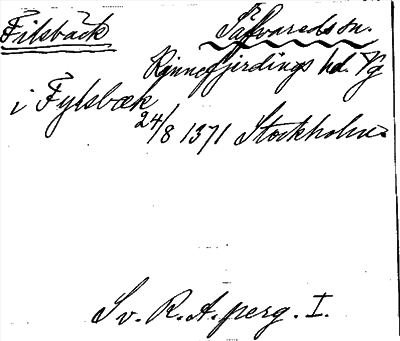 Filsbäck Säfvareds sn.
Kinnefjerdings hd. Vg
i Fylsbæk
24/8 1371 Stockholm.
Sv. R. A. perg. I.